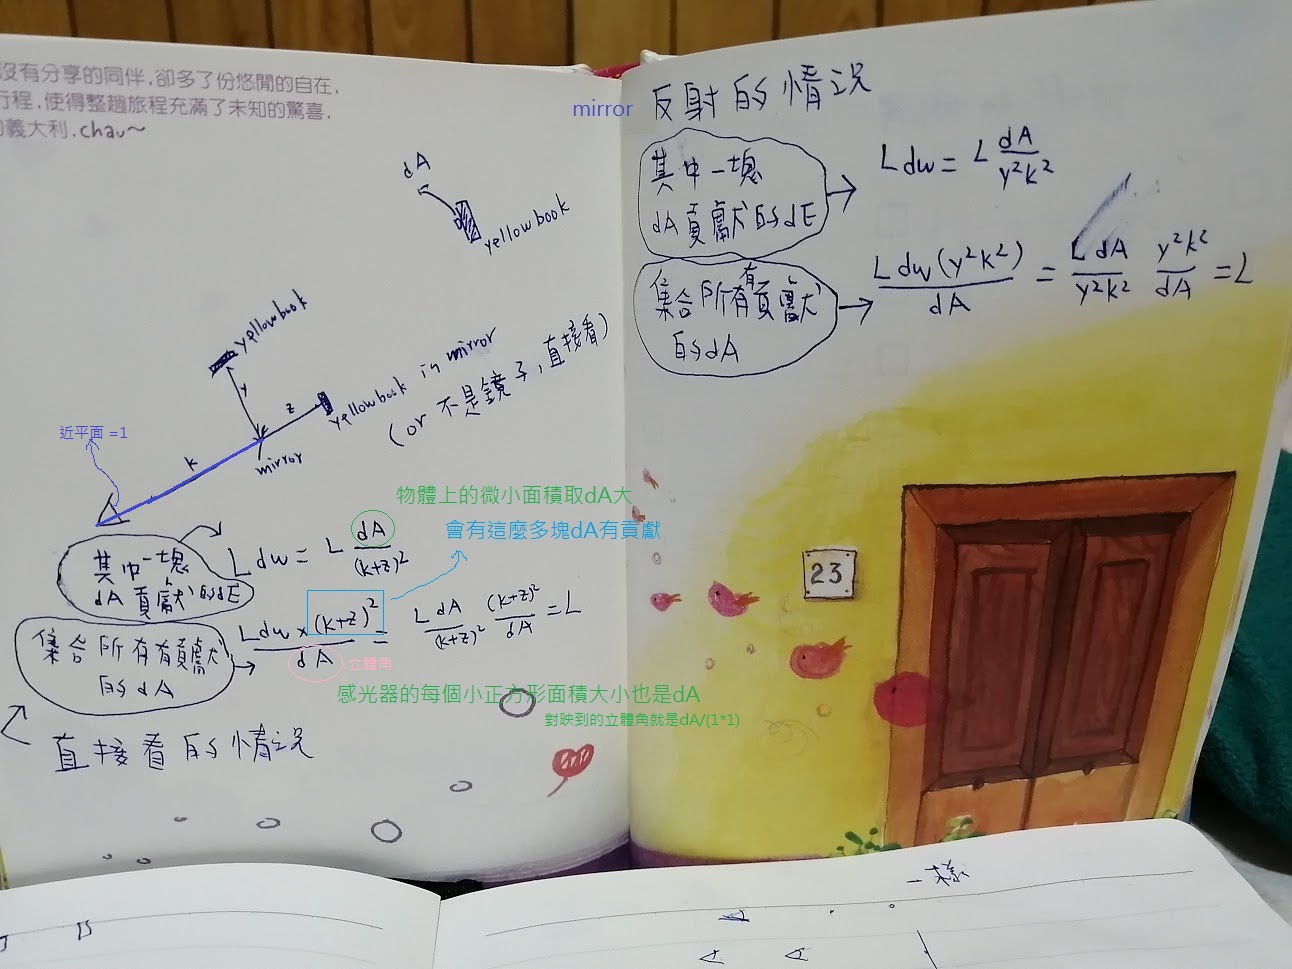 沒有分享的同伴,卻多了份悠閒的自在,
行程,使得整趟旅程充滿了未知的驚喜,
義大利,chau~
dA
yellow book
yellow book
y
z
yellow book in mirror
(or 不是鏡子,直接看)
近平面 =1
k
mirror
物體上的微小面積取dA大
會有這麼多塊dA有貢獻
其中一塊
dA 貢獻的dE
L dw = L dA/(k+z)²
集合所有有貢獻
的dA
L dw × (k+z)²/dA = L dA/(k+z)² (k+z)²/dA = L
立體角
感光器的每個小正方形面積大小也是dA
對映到的立體角就是dA/(1*1)
直接看的情況
mirror
反射的情況
其中一塊
dA 貢獻的dE
L dw = L dA/y²k²
集合所有有貢獻
的dA
L dw (y²k²)/dA = L dA/y²k² y²k²/dA = L
23
一樣